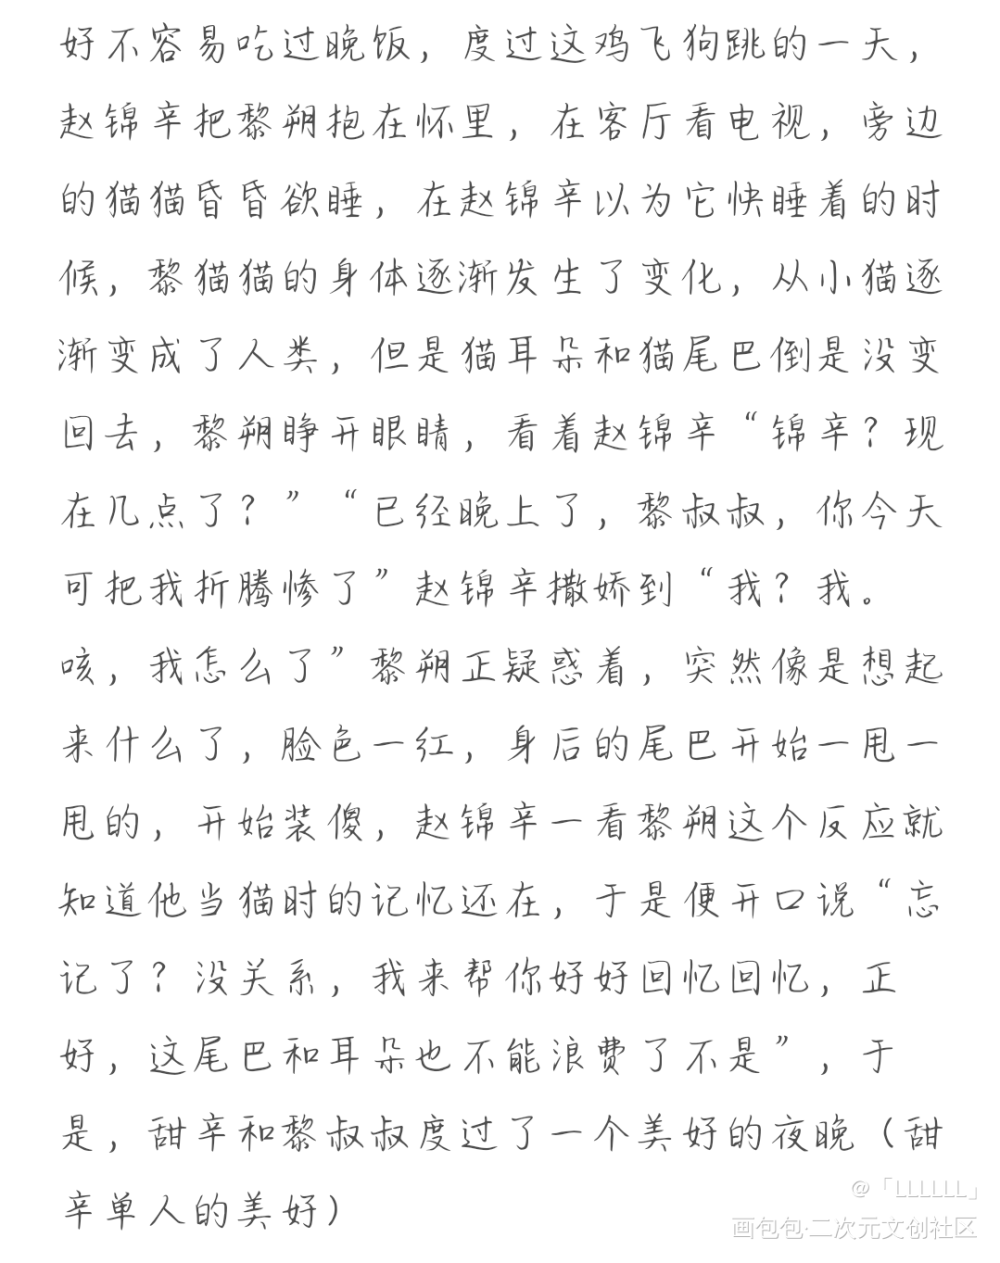 好不容易吃过晚饭，度过这鸡飞狗跳的一天，
赵锦辛把黎朔抱在怀里，在客厅看电视，旁边
的猫猫昏昏欲睡，在赵锦辛以为它快睡着的时
候，黎猫猫的身体逐渐发生了变化，从小猫逐
渐变成了人类，但是猫耳朵和猫尾巴倒是没变
回去，黎朔睁开眼睛，看着赵锦辛“锦辛？现
在几点了？”“已经晚上了，黎叔叔，你今天
可把我折腾惨了”赵锦辛撒娇到“我？我。
咳，我怎么了”黎朔正疑惑着，突然像是想起
来什么了，脸色一红，身后的尾巴开始一甩一
甩的，开始装傻，赵锦辛一看黎朔这个反应就
知道他当猫时的记忆还在，于是便开口说“忘
记了？没关系，我来帮你好好回忆回忆，正
好，这尾巴和耳朵也不能浪费了不是”，于
是，甜辛和黎叔叔度过了一个美好的夜晚（甜
辛单人的美好）
@「LLLLLL」
画包包·二次元文创社区